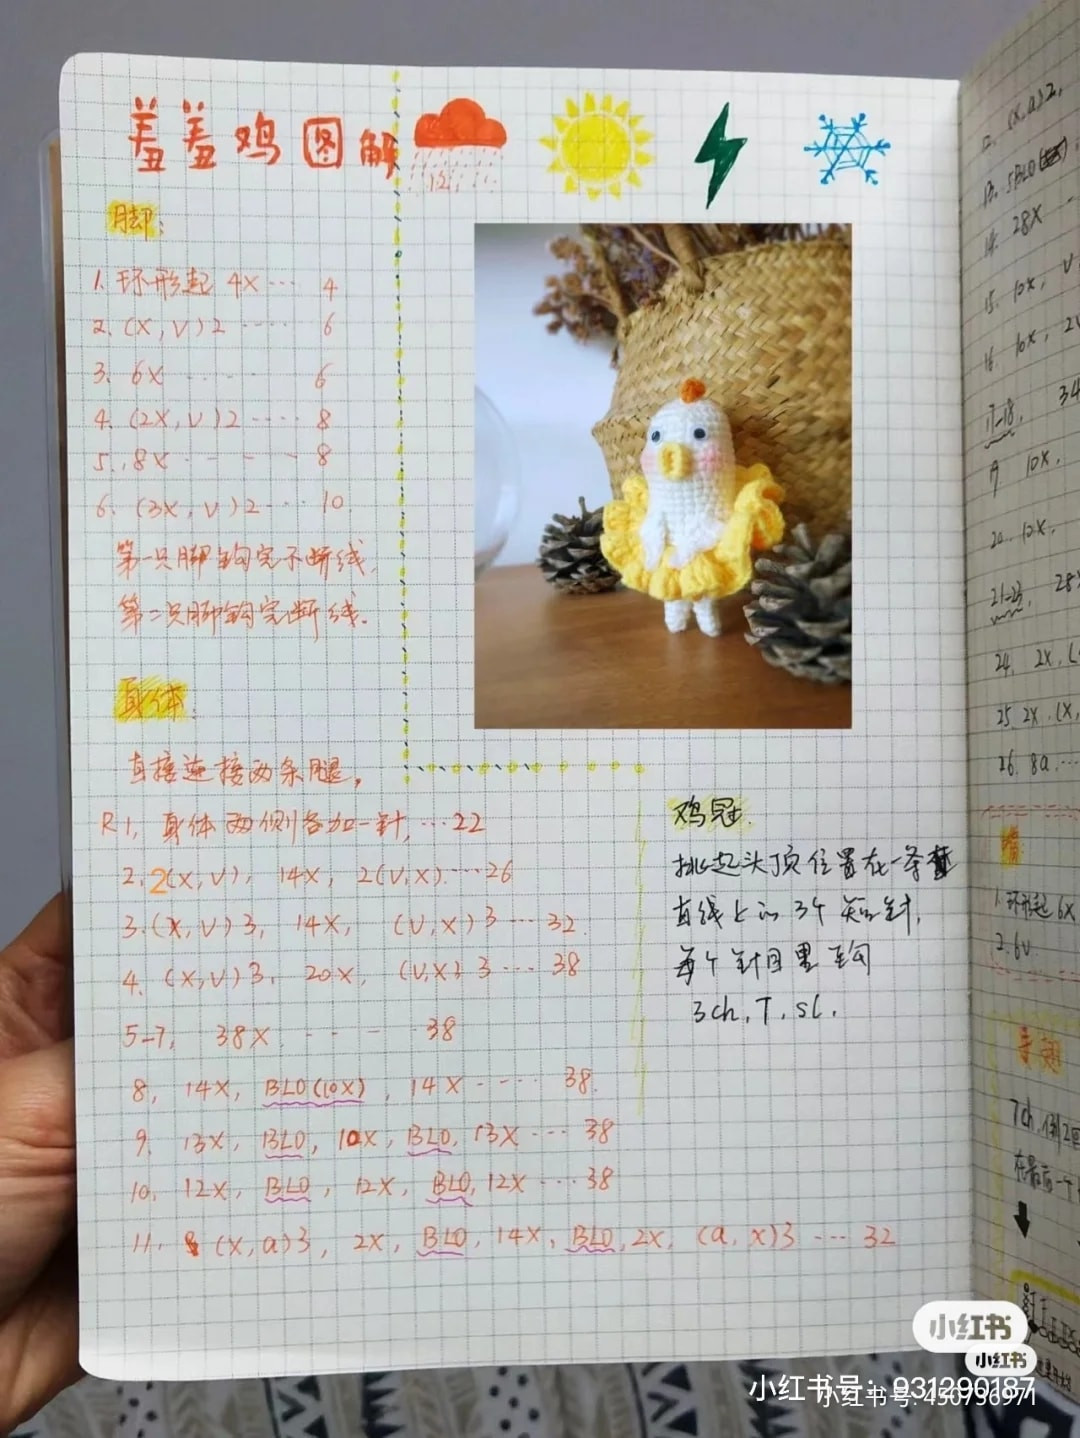 羞羞鸡图解
脚:
1. 环形起 4X ··· 4
2. (X, V) 2 ···· 6
3. 6X ···· 6
4. (2X, V) 2 ···· 8
5. 8X - - - - 8
6. (3X, V) 2 ··· 10
第一只脚钩完不断线,
第二只脚钩完断线.
身体:
直接连接两条腿,
R1, 身体两侧各加一针, ··· 22
2. 2(X, V), 14X, 2(V, X) ···· 26
3. (X, V) 3, 14X, (V, X) 3 ··· 32
4. (X, V) 3, 20X, (V, X) 3 ··· 38
5-7, 38X - - - 38
8, 14X, BLO(10X), 14X - - - - 38
9. 13X, BLO, 10X, BLO, 13X ··· 38
10. 12X, BLO, 12X, BLO, 12X ··· 38
11. (X, a) 3, 2X, BLO, 14X, BLO, 2X, (a, X) 3 --- 32
鸡冠.
挑起头顶位置在一条
直线上的3个短针,
每个针目里钩
3ch, T, sl.
(X, a) 2,
28X
10X, V
16. 10X, 2V
17-18, 34
10X,
20. 12X,
21-23, 28X
24. 2X, (
25. 2X, (X,
26. 8a ...
嘴
1. 环形起 6X
2. 6V
翅
7ch, 倒2
在最后一个
小红书
小红书
小红书号: 931290187
小红书号: 450756971